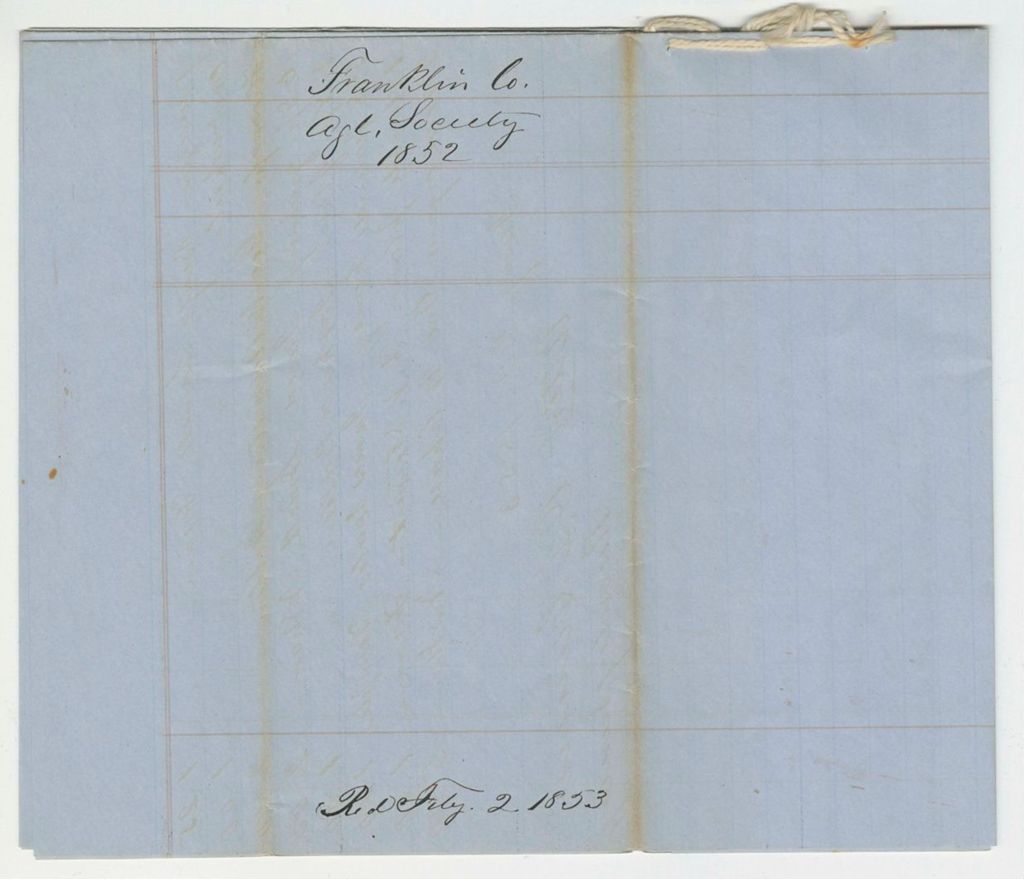 Franklin Co.
Agl. Society
1852
Rcd Feby. 2 1853